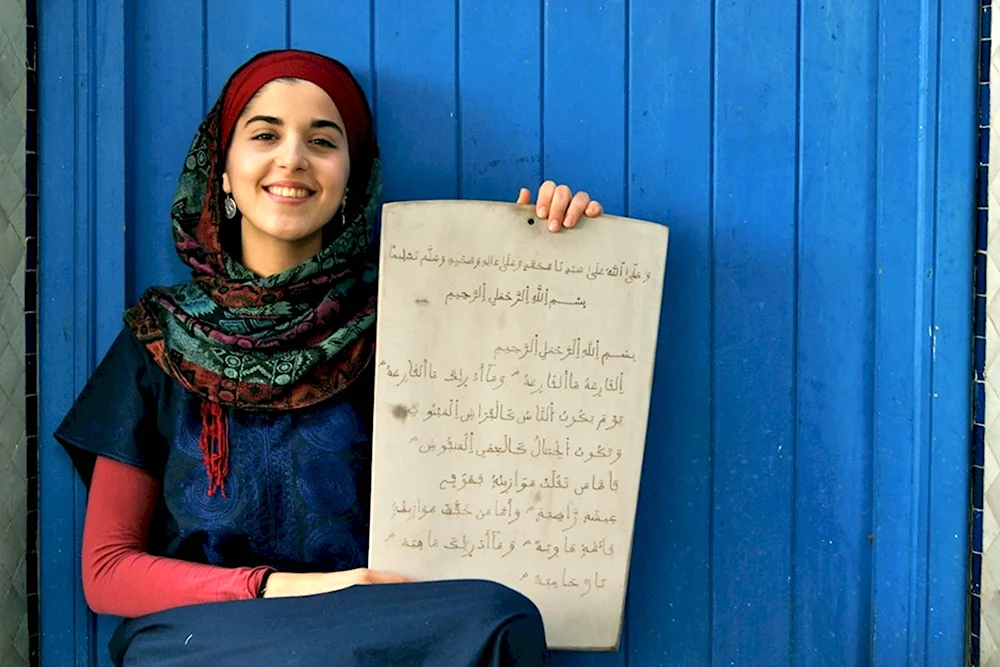 وَصَلَّى اَللَّهُ عَلَى سَيِّدِنَا مُحَمَّدٍ وَعَلَى ءَالِهِ وَصَحْبِهِ وَسَلَّمَ تَسْلِيمًا
بِسْمِ اِللَّهِ اِلرَّحْمَٰنِ اِلرَّحِيمِ
بِسْمِ اِللَّهِ اِلرَّحْمَٰنِ اِلرَّحِيمِ
اِلْقَارِعَةُ مَا اَلْقَارِعَةُ وَمَآ أَدْرِيكَ مَا اَلْقَارِعَةُ
يَوْمَ يَكُونُ اُلنَّاسُ كَالْفَرَاشِ اِلْمَبْثُوثِ
وَتَكُونُ اُلْجِبَالُ كَالْعِهْنِ اِلْمَنْفُوشِ
فَأَمَّا مَن ثَقُلَتْ مَوَازِينُهُ فَهُوَ فِي
عِيشَةٍ رَّاضِيَةٍ وَأَمَّا مَنْ خَفَّتْ مَوَازِينُهُ
فَأُمُّهُ هَاوِيَةٌ وَمَآ أَدْرِيكَ مَا هِيَهْ
نَارٌ حَامِيَةٌ